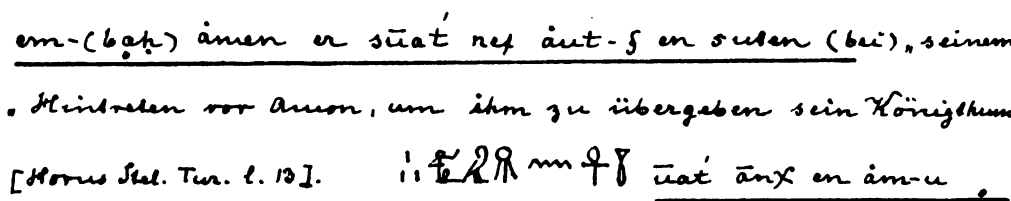 em-(bạḥ) åmen er sūat́ nef åut-f en suten (bei) „seinem
„Hintreten vor Amon, um ihm zu übergeben sein Königthum
[Horus Stel. Tur. l. 13]. ūat́ ānχ en åm-u